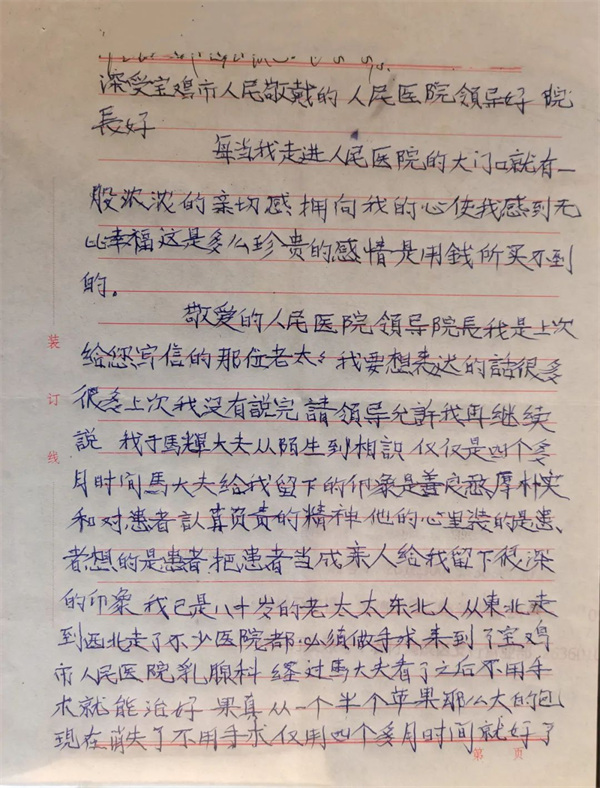 深受宝鸡市人民敬戴的人民医院領导好 院
長好
每当我走进人民医院的大门口就有一
股浓浓的亲切感拥向我的心使我感到无
比幸福这是多么珍贵的感情是用錢所买不到
的。
敬爱的人民医院領导院長我是上次
给您写信的那位老太々我要想表达的話很多
很多上次我没有説完請領导允許我再继续
説 我于馬輝大夫从陌生到相識仅仅是四个多
月时间馬大夫给我留下的印象是善良憨厚朴实
和对患者認真负责的精神他的心里装的是患
者想的是患者把患者当成亲人给我留下很深
的印象我已是八十岁的老太太东北人从東北走
到西北走了不少医院都必须做手术来到了宝鸡
市人民医院乳腺科经过馬大夫看了之后不用手
术就能治好 果真从一个半个苹果那么大的包
现在消失了不用手术仅用四个多月时间就好了
装
订
线
第 页